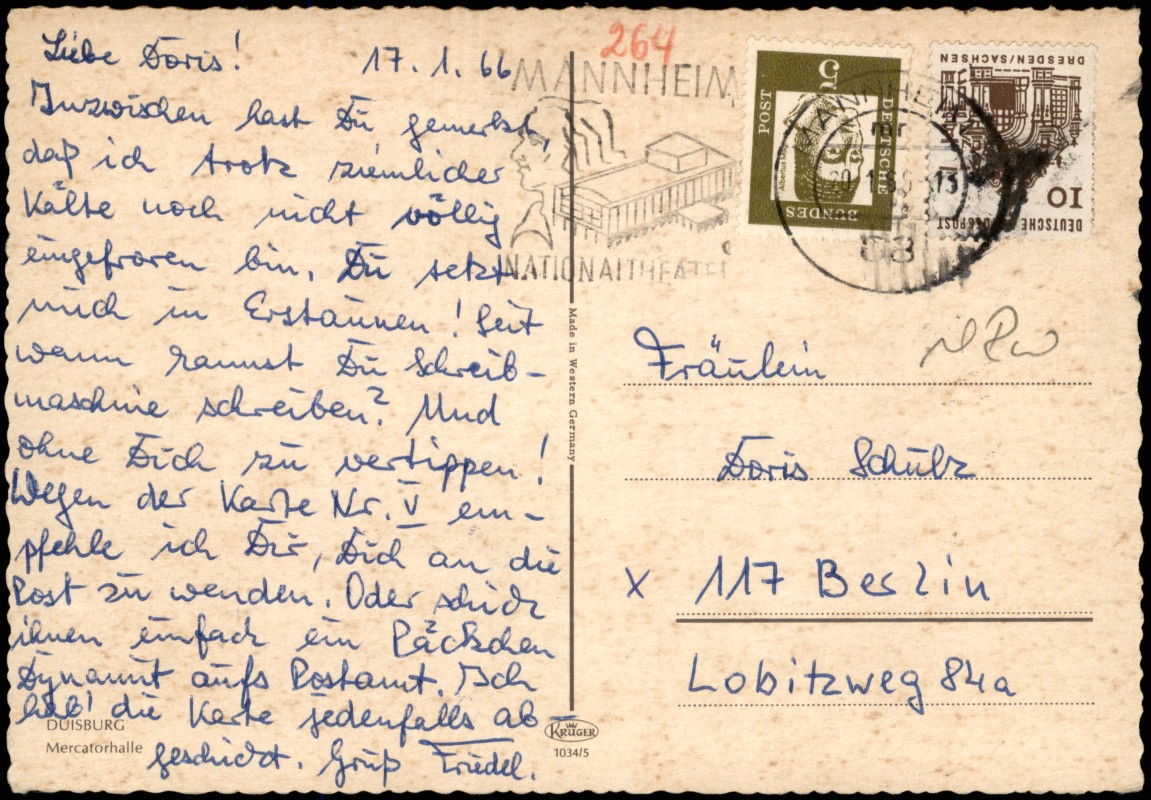 Liebe Doris!
17.1.66
Inzwischen hast Du gemerkt,
daß ich trotz ziemlicher
Kälte noch nicht völlig
eingefroren bin. Du setzt
mich in Erstaunen! Seit
wann kannst Du Schreib-
maschine schreiben? Und
ohne Dich zu vertippen!
Wegen der Karte Nr. V em-
pfehle ich Dir, Dich an die
Post zu wenden. Oder schick
ihnen einfach ein Päckchen
Dynamit aufs Postamt. Ich
hab' die Karte jedenfalls ab-
geschickt. Gruß Friedel.
DUISBURG
Mercatorhalle
Made in Western Germany
KRÜGER
1034/5
264
MANNHEIM
NATIONALTHEATER
5
DEUTSCHE
BUNDES
POST
MANNHEIM
DRESDEN/SACHSEN
10
DEUTSCHE BUNDESPOST
Fräulein
Doris Schulz
x 117 Berlin
Lobitzweg 84a